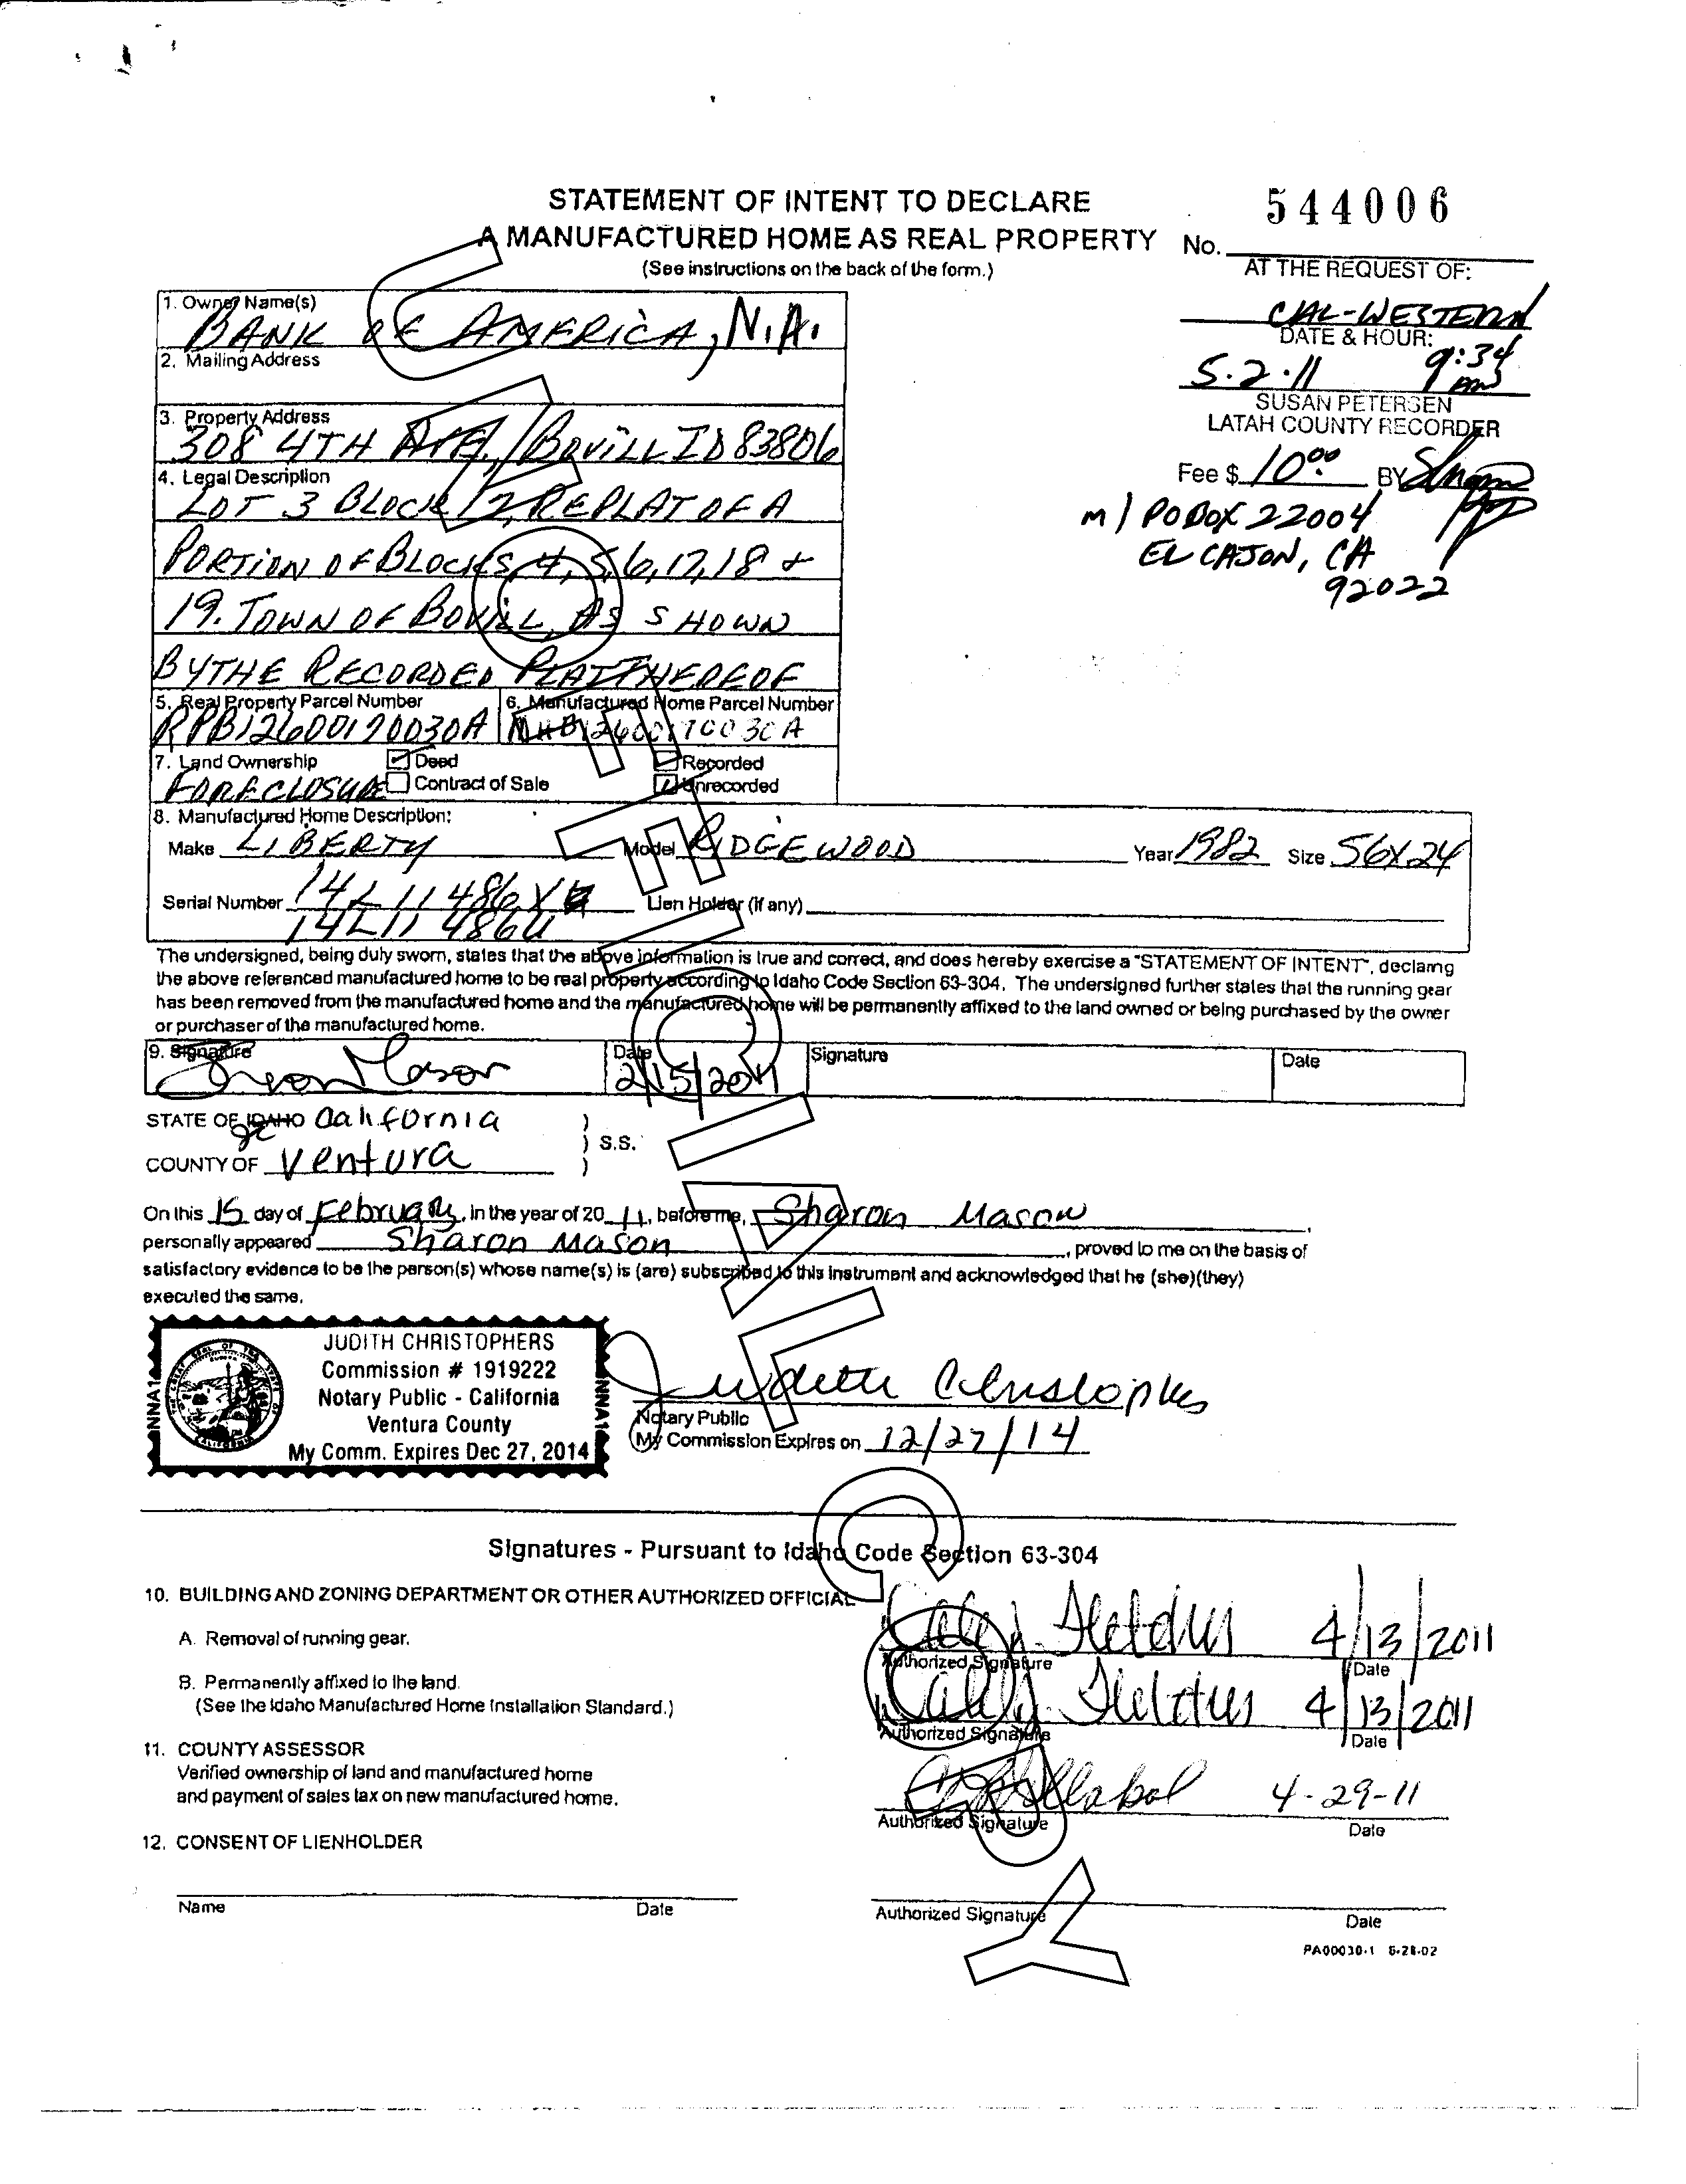 STATEMENT OF INTENT TO DECLARE
A MANUFACTURED HOME AS REAL PROPERTY
(See instructions on the back of the form.)
No. 544006
AT THE REQUEST OF:
CAL-WESTERN
DATE & HOUR:
5.2.11 9:34 am
SUSAN PETERSEN
LATAH COUNTY RECORDER
Fee $ 10.00 BY
m/ PO BOX 22004
EL CAJON, CA
92022
1. Owner Name(s)
BANK OF AMERICA, N.A.
2. Mailing Address
3. Property Address
308 4TH AVE. / BOVILL ID 83806
4. Legal Description
LOT 3 BLOCK 12, REPLAT OF A
PORTION OF BLOCKS 4, 5, 6, 17, 18 +
19. TOWN OF BOVILL, AS SHOWN
BY THE RECORDED PLAT THEREOF
5. Real Property Parcel Number
6. Manufactured Home Parcel Number
7. Land Ownership
FORECLOSURE
Deed
Contract of Sale
Recorded
Unrecorded
8. Manufactured Home Description:
Make LIBERTY Model RIDGEWOOD Year 1982 Size 56X24
Serial Number Lien Holder (if any)
14L11486U
The undersigned, being duly sworn, states that the above information is true and correct, and does hereby exercise a "STATEMENT OF INTENT", declaring
the above referenced manufactured home to be real property according to Idaho Code Section 63-304. The undersigned further states that the running gear
has been removed from the manufactured home and the manufactured home will be permanently affixed to the land owned or being purchased by the owner
or purchaser of the manufactured home.
9. Signature Date Signature Date
Sharon Mason 2/15/2011
STATE OF IDAHO California )
) S.S.
COUNTY OF Ventura )
On this 15 day of February, in the year of 20 11, before me, Sharon Mason,
personally appeared Sharon Mason, proved to me on the basis of
satisfactory evidence to be the person(s) whose name(s) is (are) subscribed to this instrument and acknowledged that he (she)(they)
executed the same.
JUDITH CHRISTOPHERS
Commission # 1919222
Notary Public - California
Ventura County
My Comm. Expires Dec 27, 2014
Judith Christophers
Notary Public
My Commission Expires on 12/27/14
Signatures - Pursuant to Idaho Code Section 63-304
10. BUILDING AND ZONING DEPARTMENT OR OTHER AUTHORIZED OFFICIAL
A. Removal of running gear.
4/13/2011
Authorized Signature Date
B. Permanently affixed to the land.
(See the Idaho Manufactured Home Installation Standard.)
4/13/2011
Authorized Signature Date
11. COUNTY ASSESSOR
Verified ownership of land and manufactured home
and payment of sales tax on new manufactured home.
4-29-11
Authorized Signature Date
12. CONSENT OF LIENHOLDER
Name Date Authorized Signature Date
PA00030-1 6-28-02
COURTESY